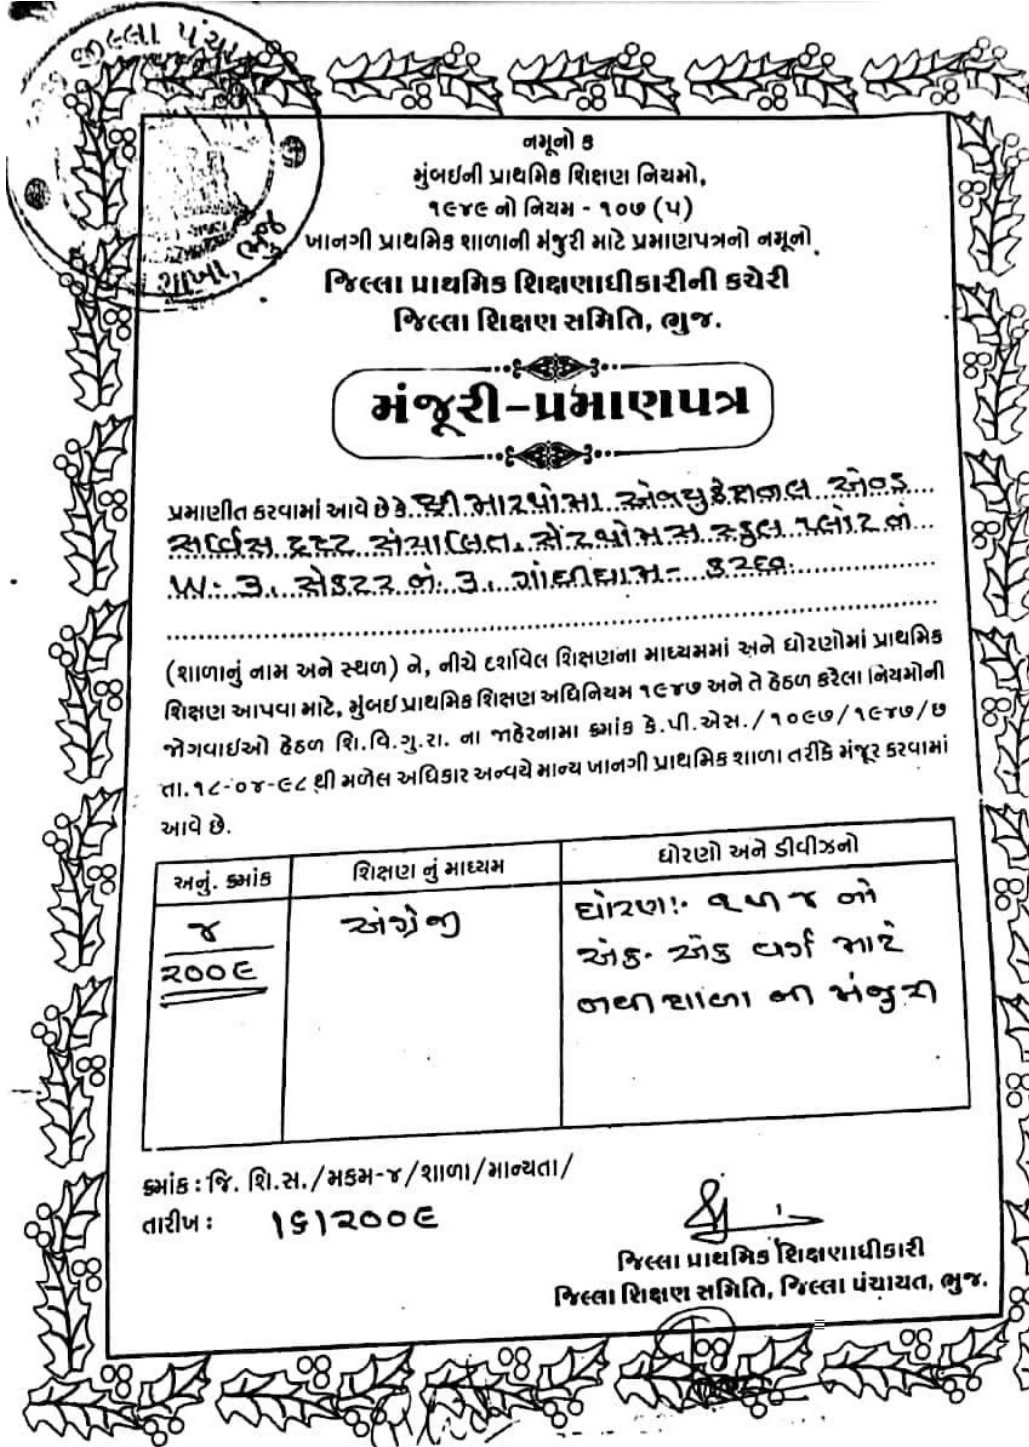 જીલ્લા પંચા
શાખા, ભુજ
નમૂનો ક
મુંબઈની પ્રાથમિક શિક્ષણ નિયમો,
૧૯૪૯ નો નિયમ - ૧૦૭ (૫)
ખાનગી પ્રાથમિક શાળાની મંજુરી માટે પ્રમાણપત્રનો નમૂનો
જિલ્લા પ્રાથમિક શિક્ષણાધીકારીની કચેરી
જિલ્લા શિક્ષણ સમિતિ, ભુજ.
મંજૂરી-પ્રમાણપત્ર
પ્રમાણીત કરવામાં આવે છે કે શ્રી મારથોમા એજ્યુકેશનલ એન્ડ
સર્વિસ ટ્રસ્ટ સંચાલિત, સેંટથોમસ સ્કુલ પ્લોટ નં
W-૩, સેકટર નં. ૩, ગાંધીધામ- કચ્છ.
(શાળાનું નામ અને સ્થળ) ને, નીચે દર્શાવેલ શિક્ષણના માધ્યમમાં અને ધોરણોમાં પ્રાથમિક
શિક્ષણ આપવા માટે, મુંબઈ પ્રાથમિક શિક્ષણ અધિનિયમ ૧૯૪૭ અને તે હેઠળ કરેલા નિયમોની
જોગવાઈઓ હેઠળ શિ.વિ.ગુ.રા. ના જાહેરનામા ક્રમાંક કે.પી.એસ./૧૦૯૭/૧૯૪૭/છ
તા.૧૮-૦૪-૯૮ થી મળેલ અધિકાર અન્વયે માન્ય ખાનગી પ્રાથમિક શાળા તરીકે મંજૂર કરવામાં
આવે છે.
અનું. ક્રમાંક શિક્ષણ નું માધ્યમ ધોરણો અને ડીવીઝનો
૪ અંગ્રેજી ધોરણ:- ૧ થી ૪ નો
૨૦૦૯ એક- એક વર્ગ માટે
નવી શાળા ની મંજુરી
ક્રમાંક : જિ. શિ.સ./મકમ-૪/શાળા/માન્યતા/
તારીખ : ૧૬/૨૦૦૯
જિલ્લા પ્રાથમિક શિક્ષણાધીકારી
જિલ્લા શિક્ષણ સમિતિ, જિલ્લા પંચાયત, ભુજ.